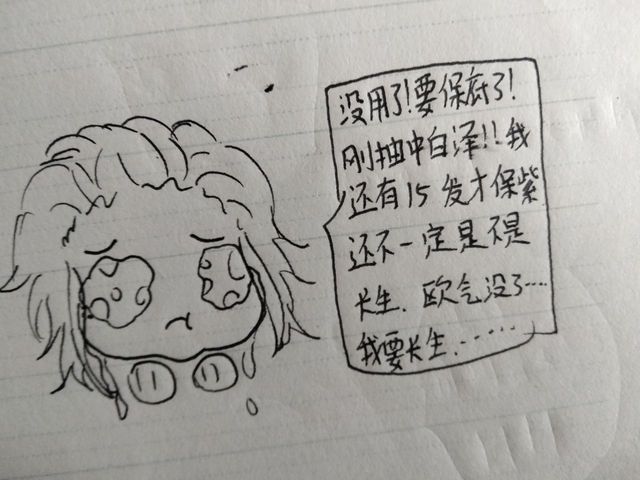 没用了!要保底了!
刚抽中白泽!!我
还有15发才保紫
还不一定是不是
长生.欧气没了…
我要长生.……